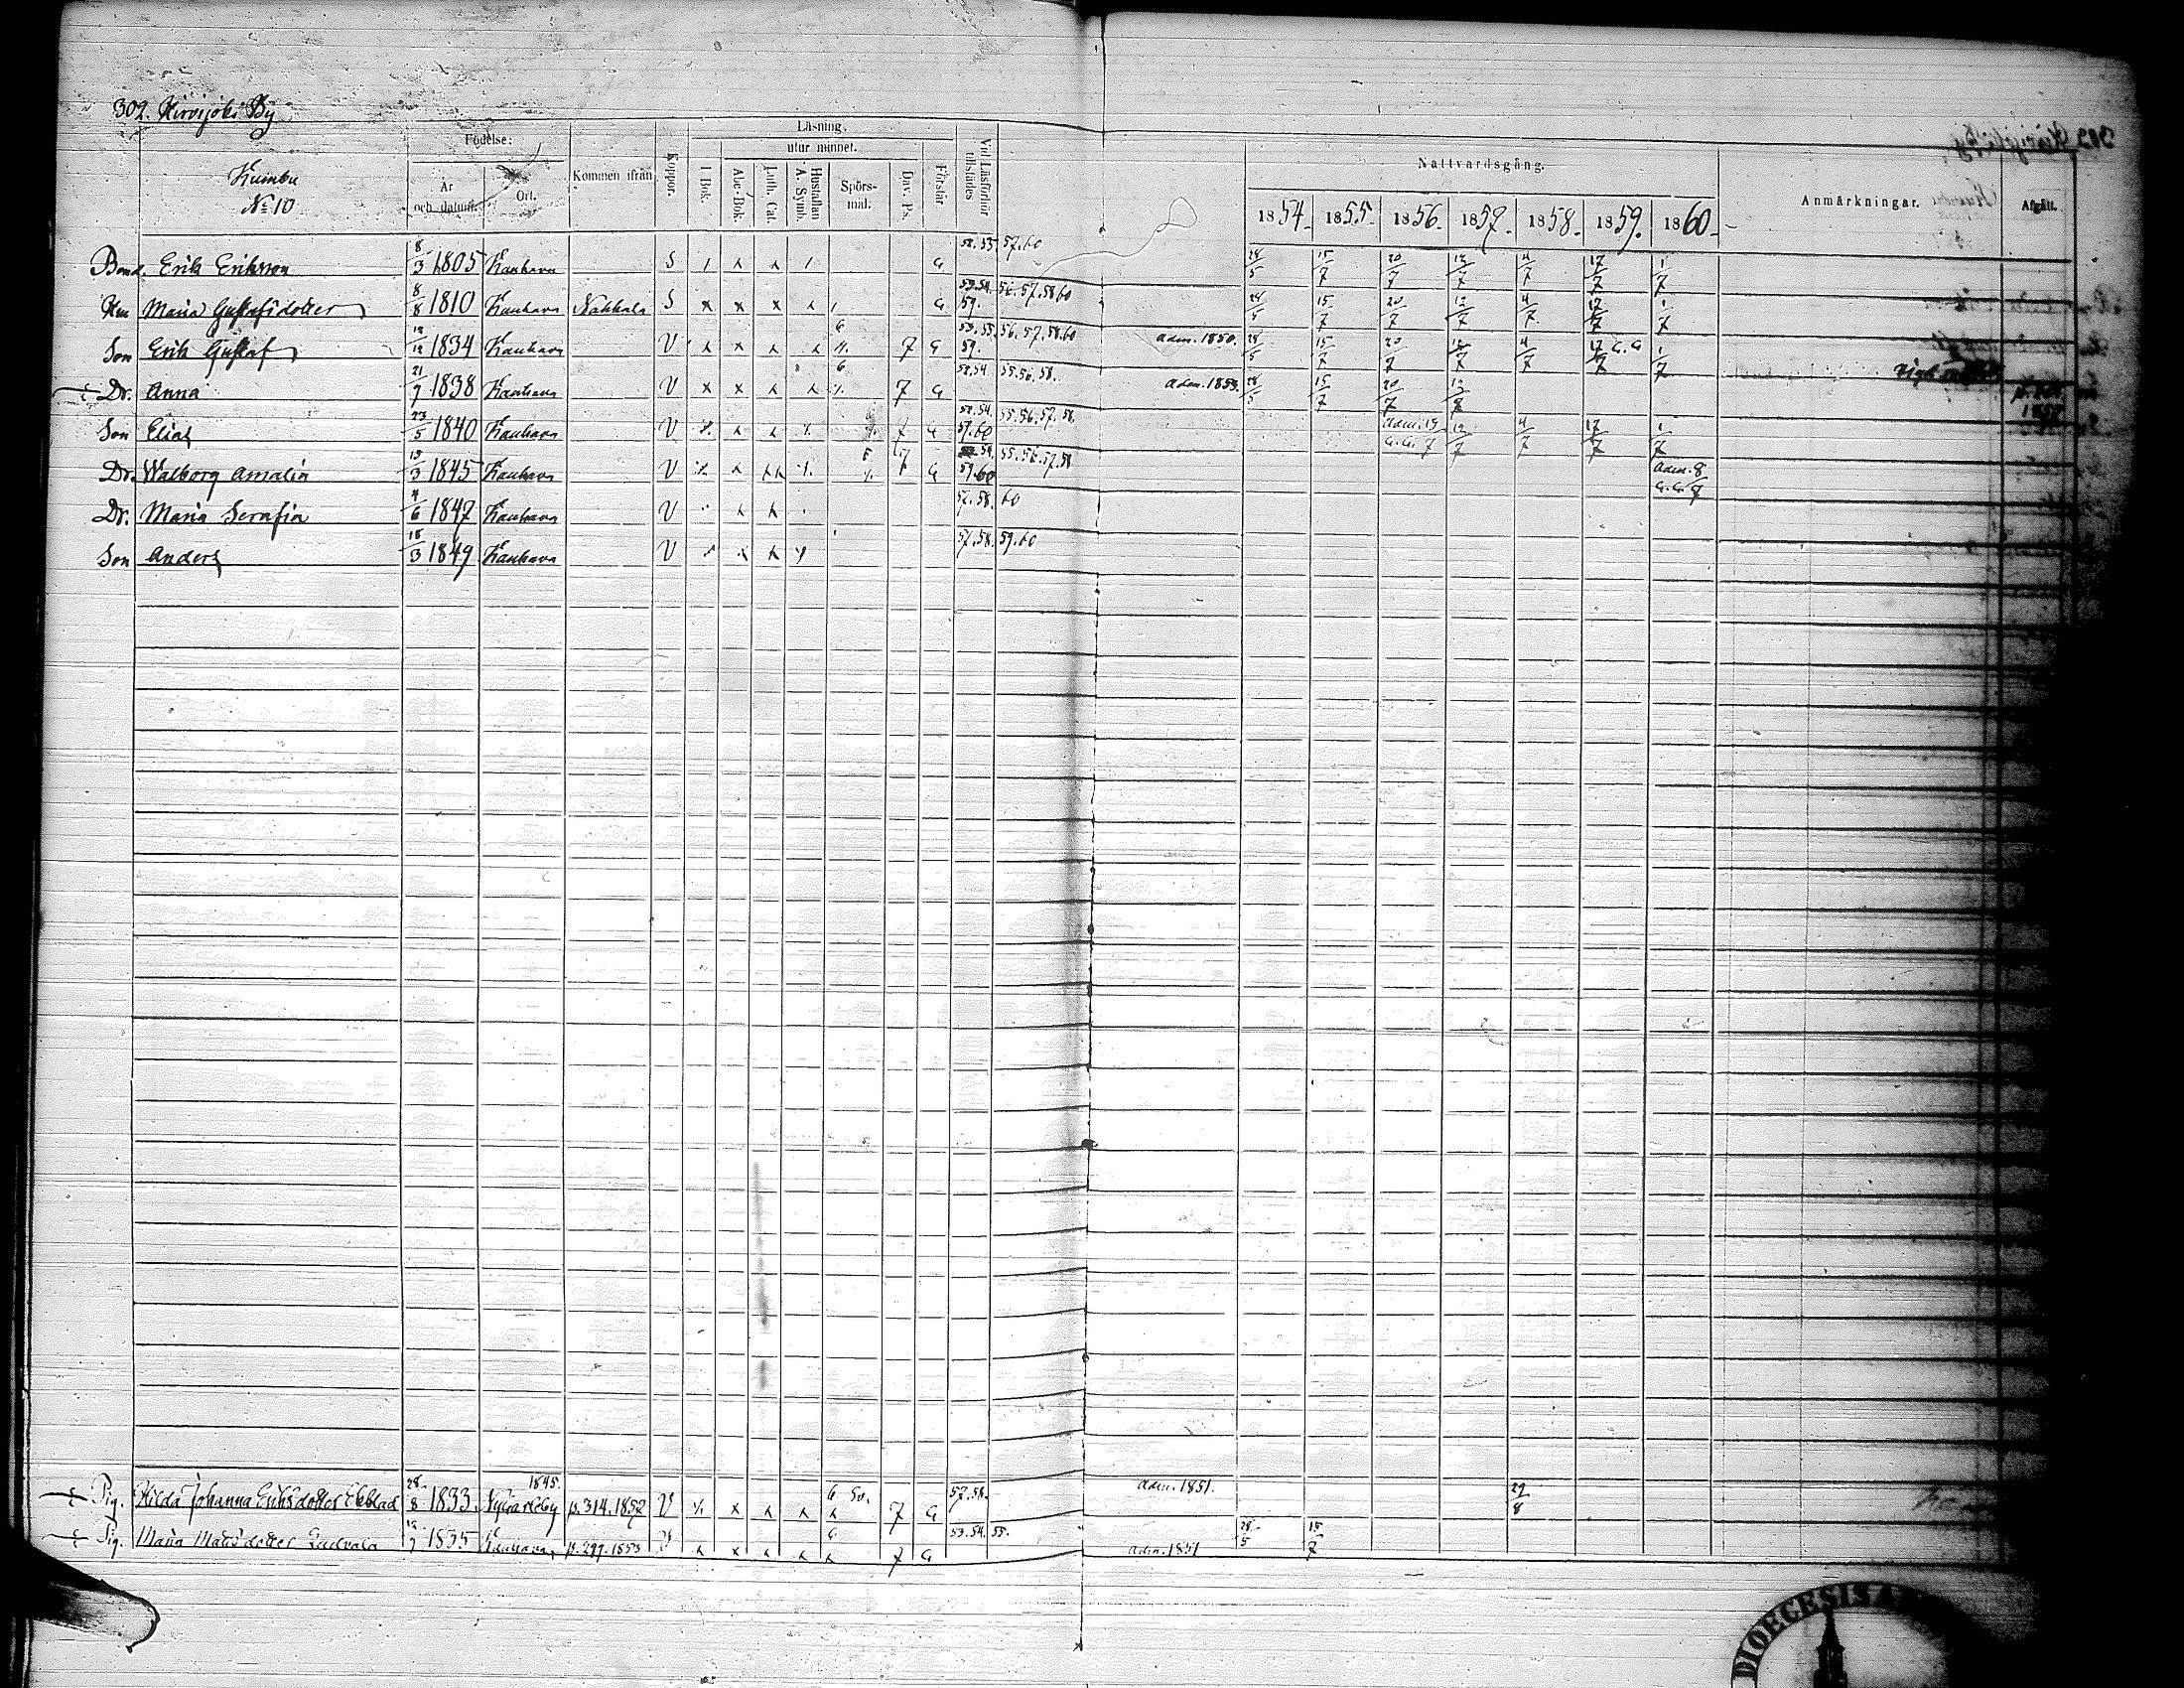 302. Hirvijoki By
Kumbu
No 10
Födelse:
År och datum. Ort.
Kommen ifrån
Koppor.
Läsning.
utur minnet.
I Bok.
Abc-Bok.
Luth. Cat.
Hustaflan A. Symb.
Spörsmål.
Dav. Ps.
Förstår
Vid Läsförhör tillstädes
Nattvardsgång.
1854. 1855. 1856. 1857. 1858. 1859. 1860.
Anmärkningar.
Afgått.
Bond. Erik Eriksson 8/3 1805 Kauhava S G 57.60 28/5 15/7 20/7 12/7 4/7 17/7 1/7
Hu Maria Gustafsdotter 8/8 1810 Kauhava S G 59. 28/5 15/7 20/7 12/7 4/7 17/7 1/7
Son Erik Gustaf 1834 Kauhava V 6 7 G 53.55. 56.57.58.60 59. adm. 1850. 28/5 15/7 20/7 12/7 4/7 17/7 G.G 1/7
Dr. Anna 21/7 1838 Kauhava V 6 7 G 55.56.58. adm. 1853. 28/5 15/7 20/7
Son Elias 23/5 1840 Kauhava V 7 G 55.56.57.58. 59.60 adm. 19/7 G.G. 12/7 4/7 17/7 1/7
Dr. Walborg Amalia 15/3 1845 Kauhava V 7 G 55.56.57.58 59.60 adm. 8/7 G.G.
Dr. Maria Serafia 4/6 1847 Kauhava V 57.58. 60
Son Anders 18/3 1849 Kauhava V 57.58. 59.60
Pig. Hilda Johanna Eriksdotter Ekblad 28/8 1833 1845. Nykarleby p. 314. 1857 V 6 7 G 57.58. adm. 1851. 29/8
Pig. Maria Matsdotter 1835 Kauhava p. 297. 1853 V 6 7 G 53.54. 55. adm. 1851 28/5 15/7
DIOECESIS A